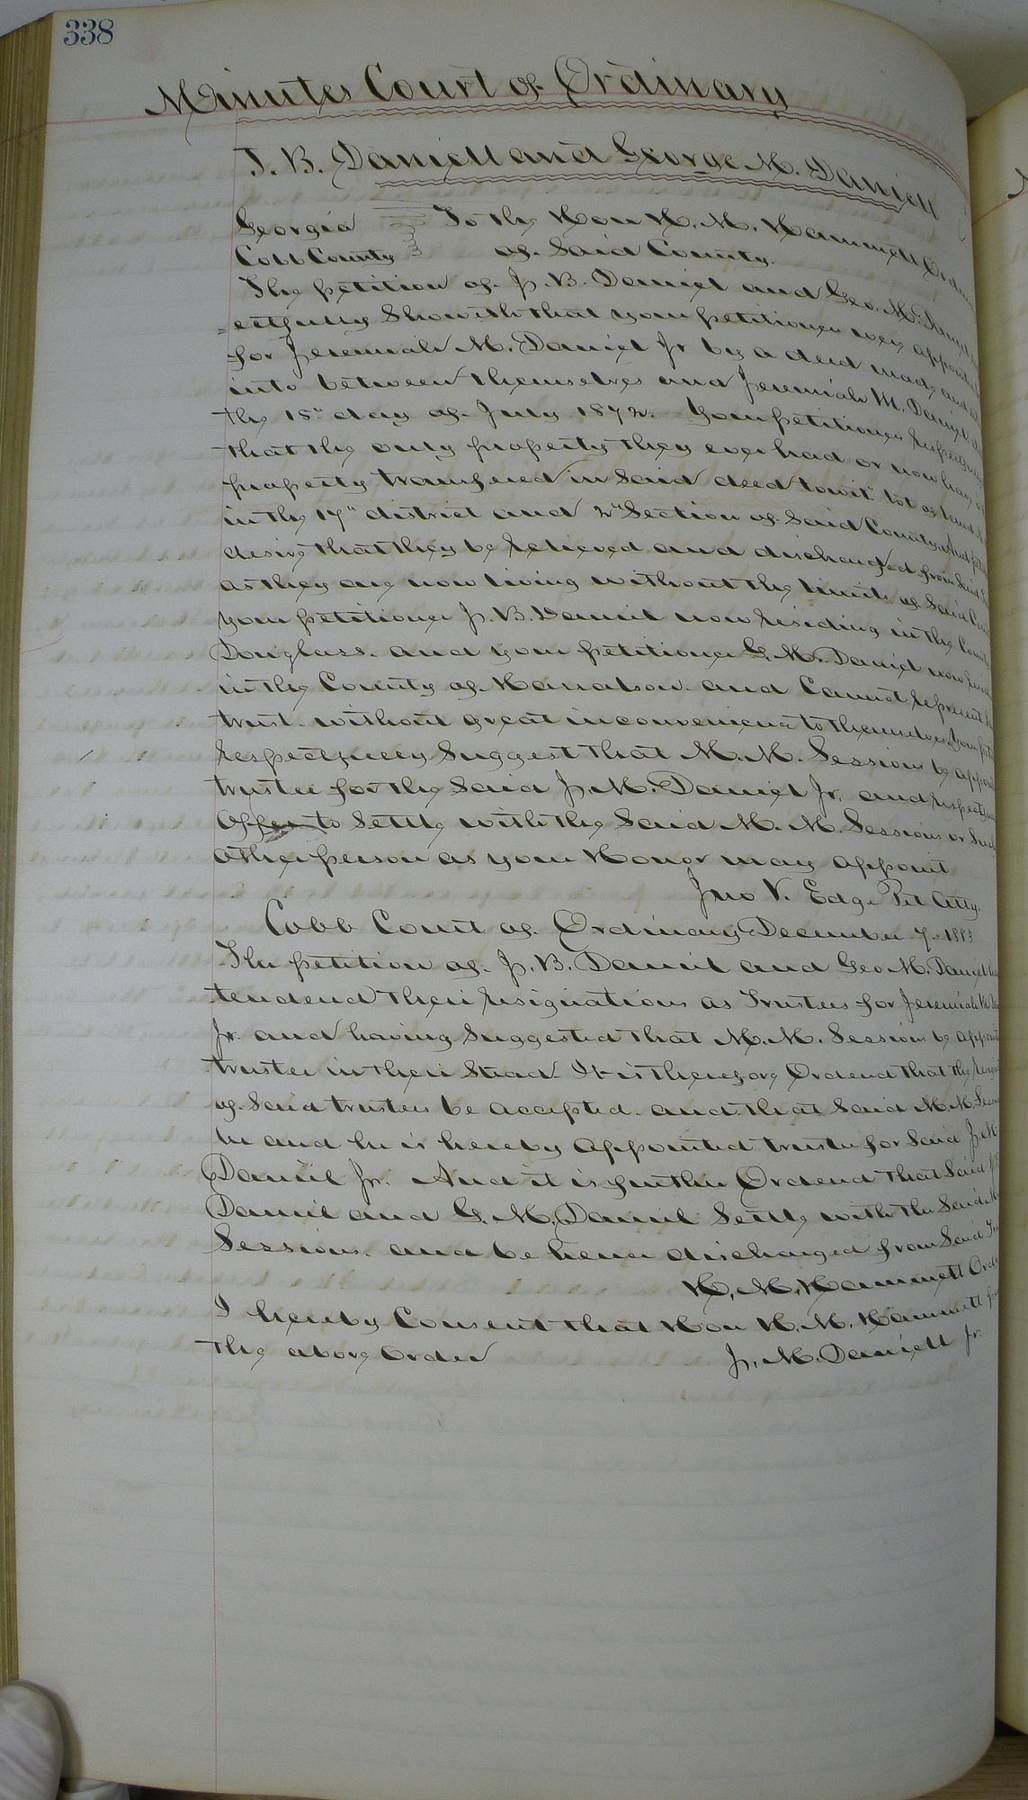 338
Minutes Court of Ordinary
J. B. Daniell and George M. Daniell
Georgia To the Hon H. M. Hammett Ordin
Cobb County of Said County.
The petition of J. B. Daniel and Geo. M. Daniel
ectfully Showeth that your petitioners were appointed
for Jeremiah M. Daniel Jr by a deed made and
into between themselves and Jeremiah M. Daniel
the 15th day of July 1872. Your petitioners
that the only property they ever had or now have
property transfered in Said deed towit lot of land
in the 17" district and 2d Section of Said County and
desire that they be releived and discharged from Said
as they are now living without the limits of Said Coun
your petitioner J. B. Daniel now residing in the County
Douglass. and your petitioner G. M. Daniel now
in the County of Haralson and Cannot represent
trust. without great inconvenience to themselves your
respectfully Suggest that M. M. Sessions be appoin
trustee for the Said J. M. Daniel Jr. and respect
Offer to Settle with the Said M. M. Sessions or Such
other person as your Honor may appoint
Jno V. Edge Pet Atty.
Cobb Court of Ordinary December 7 1883
The petition of J. B. Daniel and Geo M. Daniel
tendend their resignations as Trustees for Jeremiah M.
Jr. and having Suggested that M. M. Sessions be appoint
trustee in their Stead. It is therefore Ordend that the
of Said trustees be accepted. and that Said M. M. Sess
be and he is hereby appointed trustee for Said J. M
Daniel Jr. And it is further Ordend that Said
Daniel and G. M. Daniel Settle with the Said M
Sessions. and be hence discharged from Said Tr
H. M. Hammett Ord
I hereby Consent that Hon H. M. Hammett
the above Order J. M. Daniell Jr.